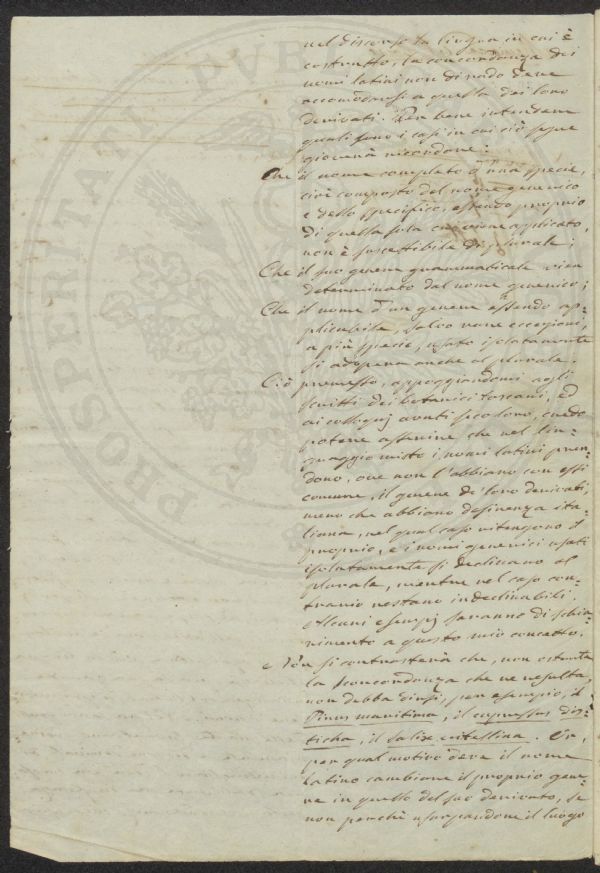 nel discorso la lingua in cui è
costrutto, la concordanza dei
nomi latini non di rado deve
accomodarsi a quella dei loro
derivati. Per bene intendere
quali sono i casi in cui ciò segue
gioverà ricordare:
Che il nome completo d'una specie,
cioè composto del nome generico
e dello specifico, essendo proprio
di quella sola cui viene applicato,
non è suscettibile di plurale;
Che il suo genere grammaticale vien
determinato dal nome generico;
Che il nome d'un genere essendo ap-
plicabile, salvo rare eccezioni,
a più specie, usato isolatamente
si adopera anche al plurale.
Ciò premesso, appoggiandomi agli
scritti dei botanici toscani, ed
ai colloquj avuti seco loro, credo
potere asserire che nel lin-
guaggio misto i nomi latini pren-
dono, ove non l'abbiano con essi
comune, il genere de' loro derivati,
meno che abbiano desinenza ita-
liana, nel qual caso ritengono il
proprio, e i nomi generici usati
isolatamente si declinano al
plurale, mentre nel caso con-
trario restano indeclinabili.
Alcuni esempj saranno di schia-
rimento a questo mio concetto.
Non si contrasterà che, non ostante
la sconcordanza che ne resulta,
non debba dirsi, per esempio, il
Pinus maritima, il cupressus dis-
ticha, il Salix vitellina. Or,
per qual motivo deve il nome
latino cambiare il proprio gene-
re in quello del suo derivato, se
non perchè usurpandone il luogo
PROSPERITATI PVB